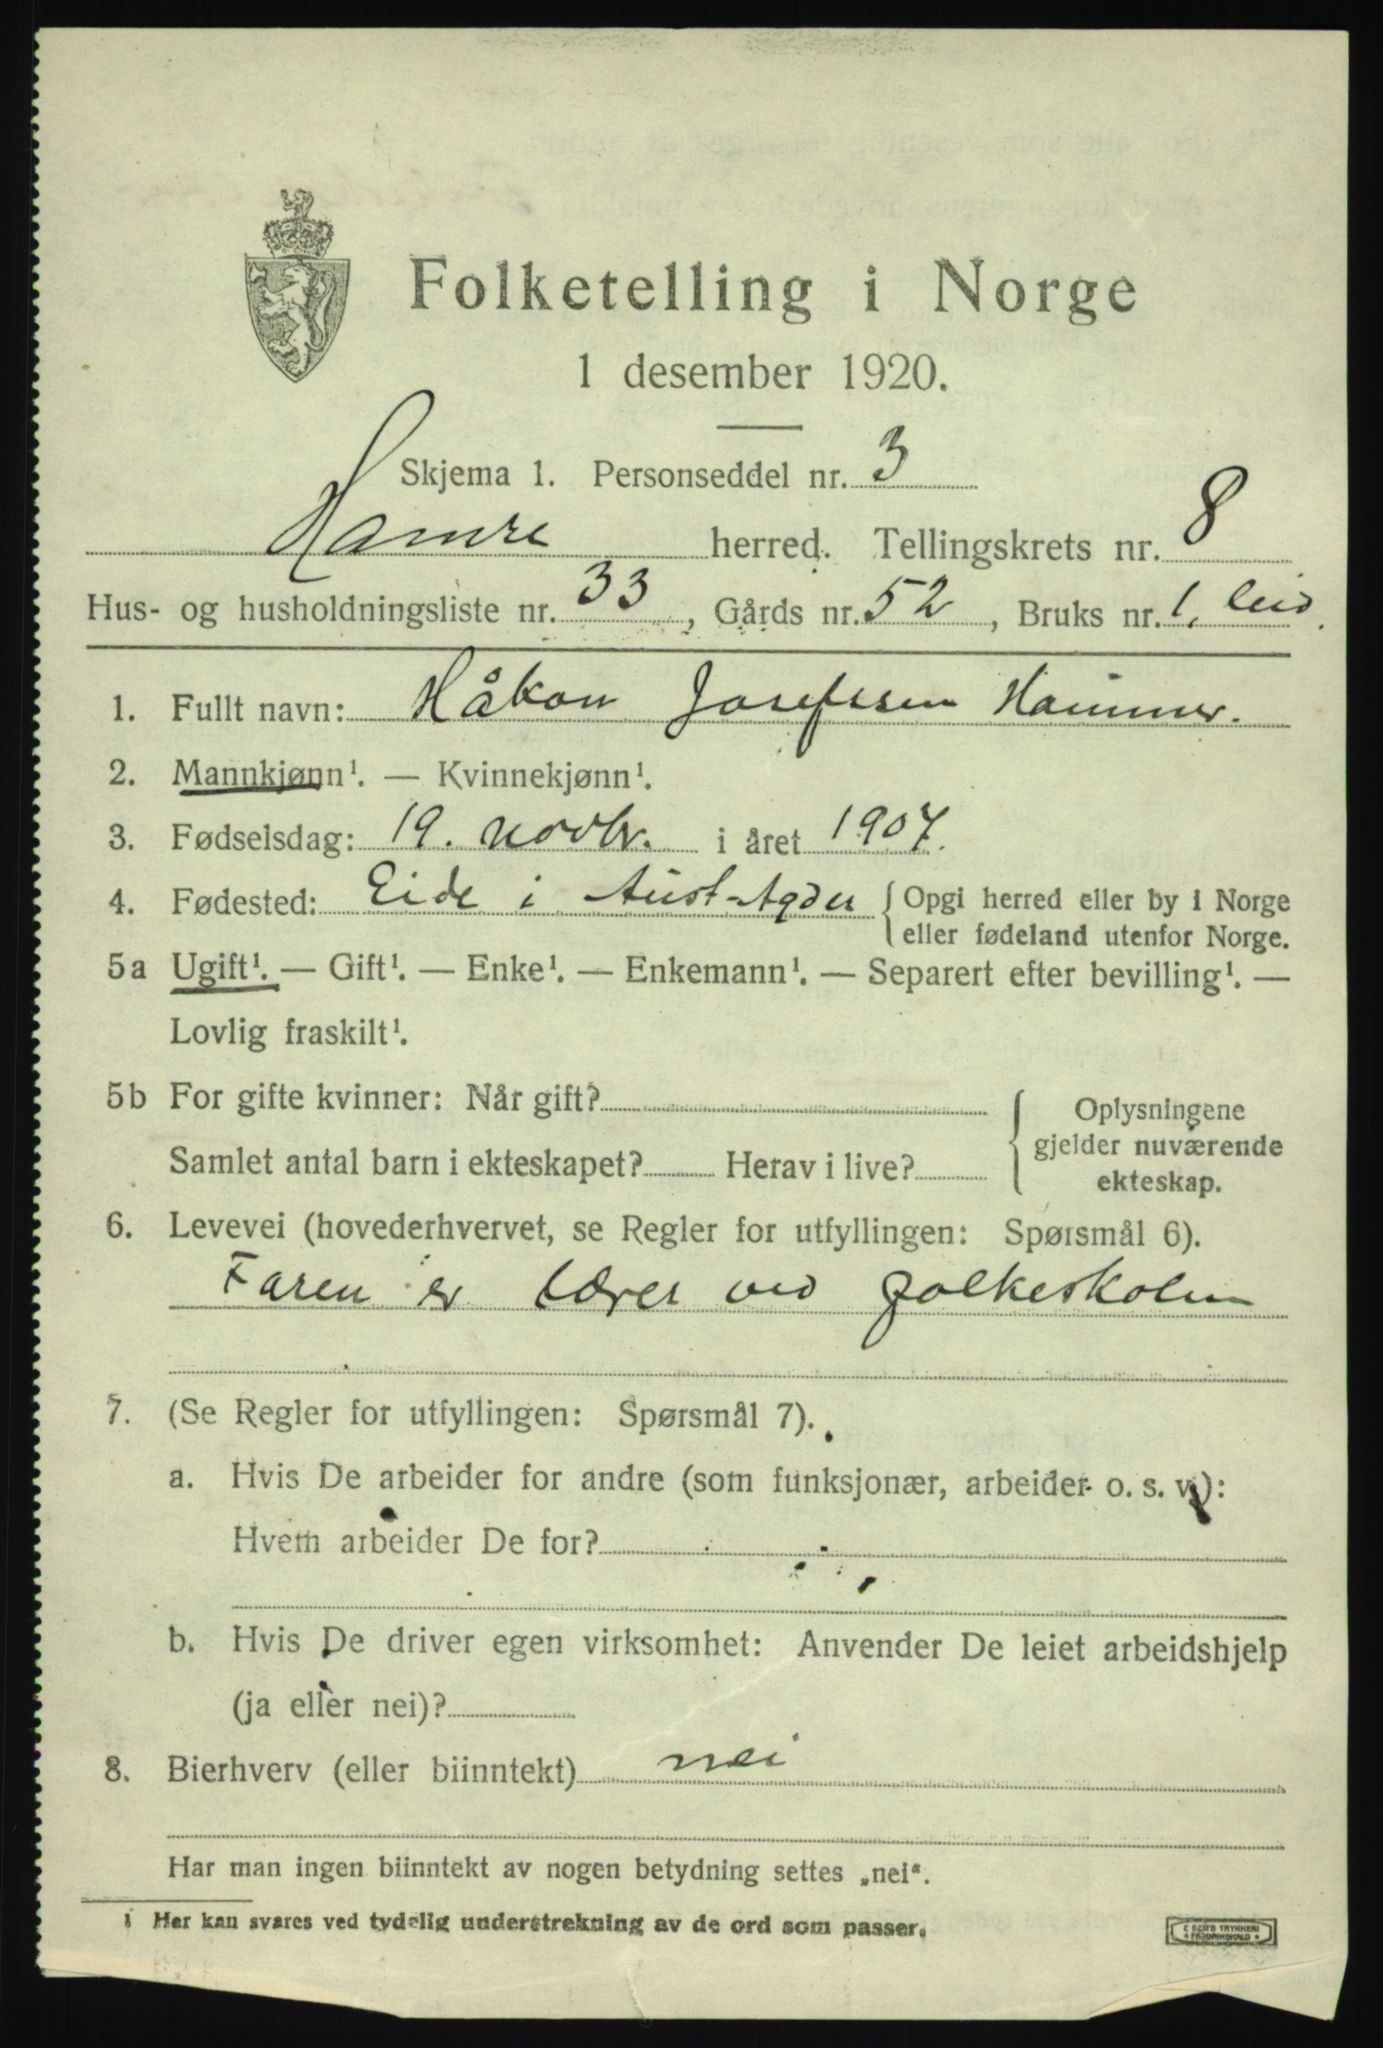 Folketelling i Norge
1 desember 1920.
Skjema 1. Personseddel nr. 3
Hamre herred. Tellingskrets nr. 8
Hus- og husholdningsliste nr. 33, Gårds nr. 52, Bruks nr. 1,
1. Fullt navn: Håkon Josefssen Hammer.
2. Mannkjønn¹. — Kvinnekjønn¹.
3. Fødselsdag: 19. novbr. i året 1907.
4. Fødested: Eide i Aust-Agder { Opgi herred eller by i Norge
eller fødeland utenfor Norge.
5a Ugift¹. — Gift¹. — Enke¹. — Enkemann¹. — Separert efter bevilling¹. —
Lovlig fraskilt¹.
5b For gifte kvinner: Når gift?
Samlet antal barn i ekteskapet? Herav i live?
{ Oplysningene
gjelder nuværende
ekteskap.
6. Levevei (hovederhvervet, se Regler for utfyllingen: Spørsmål 6).
Faren er lærer ved folkeskolen
7. (Se Regler for utfyllingen: Spørsmål 7).
a. Hvis De arbeider for andre (som funksjonær, arbeider o. s. v.):
Hvem arbeider De for?
b. Hvis De driver egen virksomhet: Anvender De leiet arbeidshjelp
(ja eller nei)?
8. Bierhverv (eller biinntekt) nei
Har man ingen biinntekt av nogen betydning settes „nei“.
1 Her kan svares ved tydelig understrekning av de ord som passer.